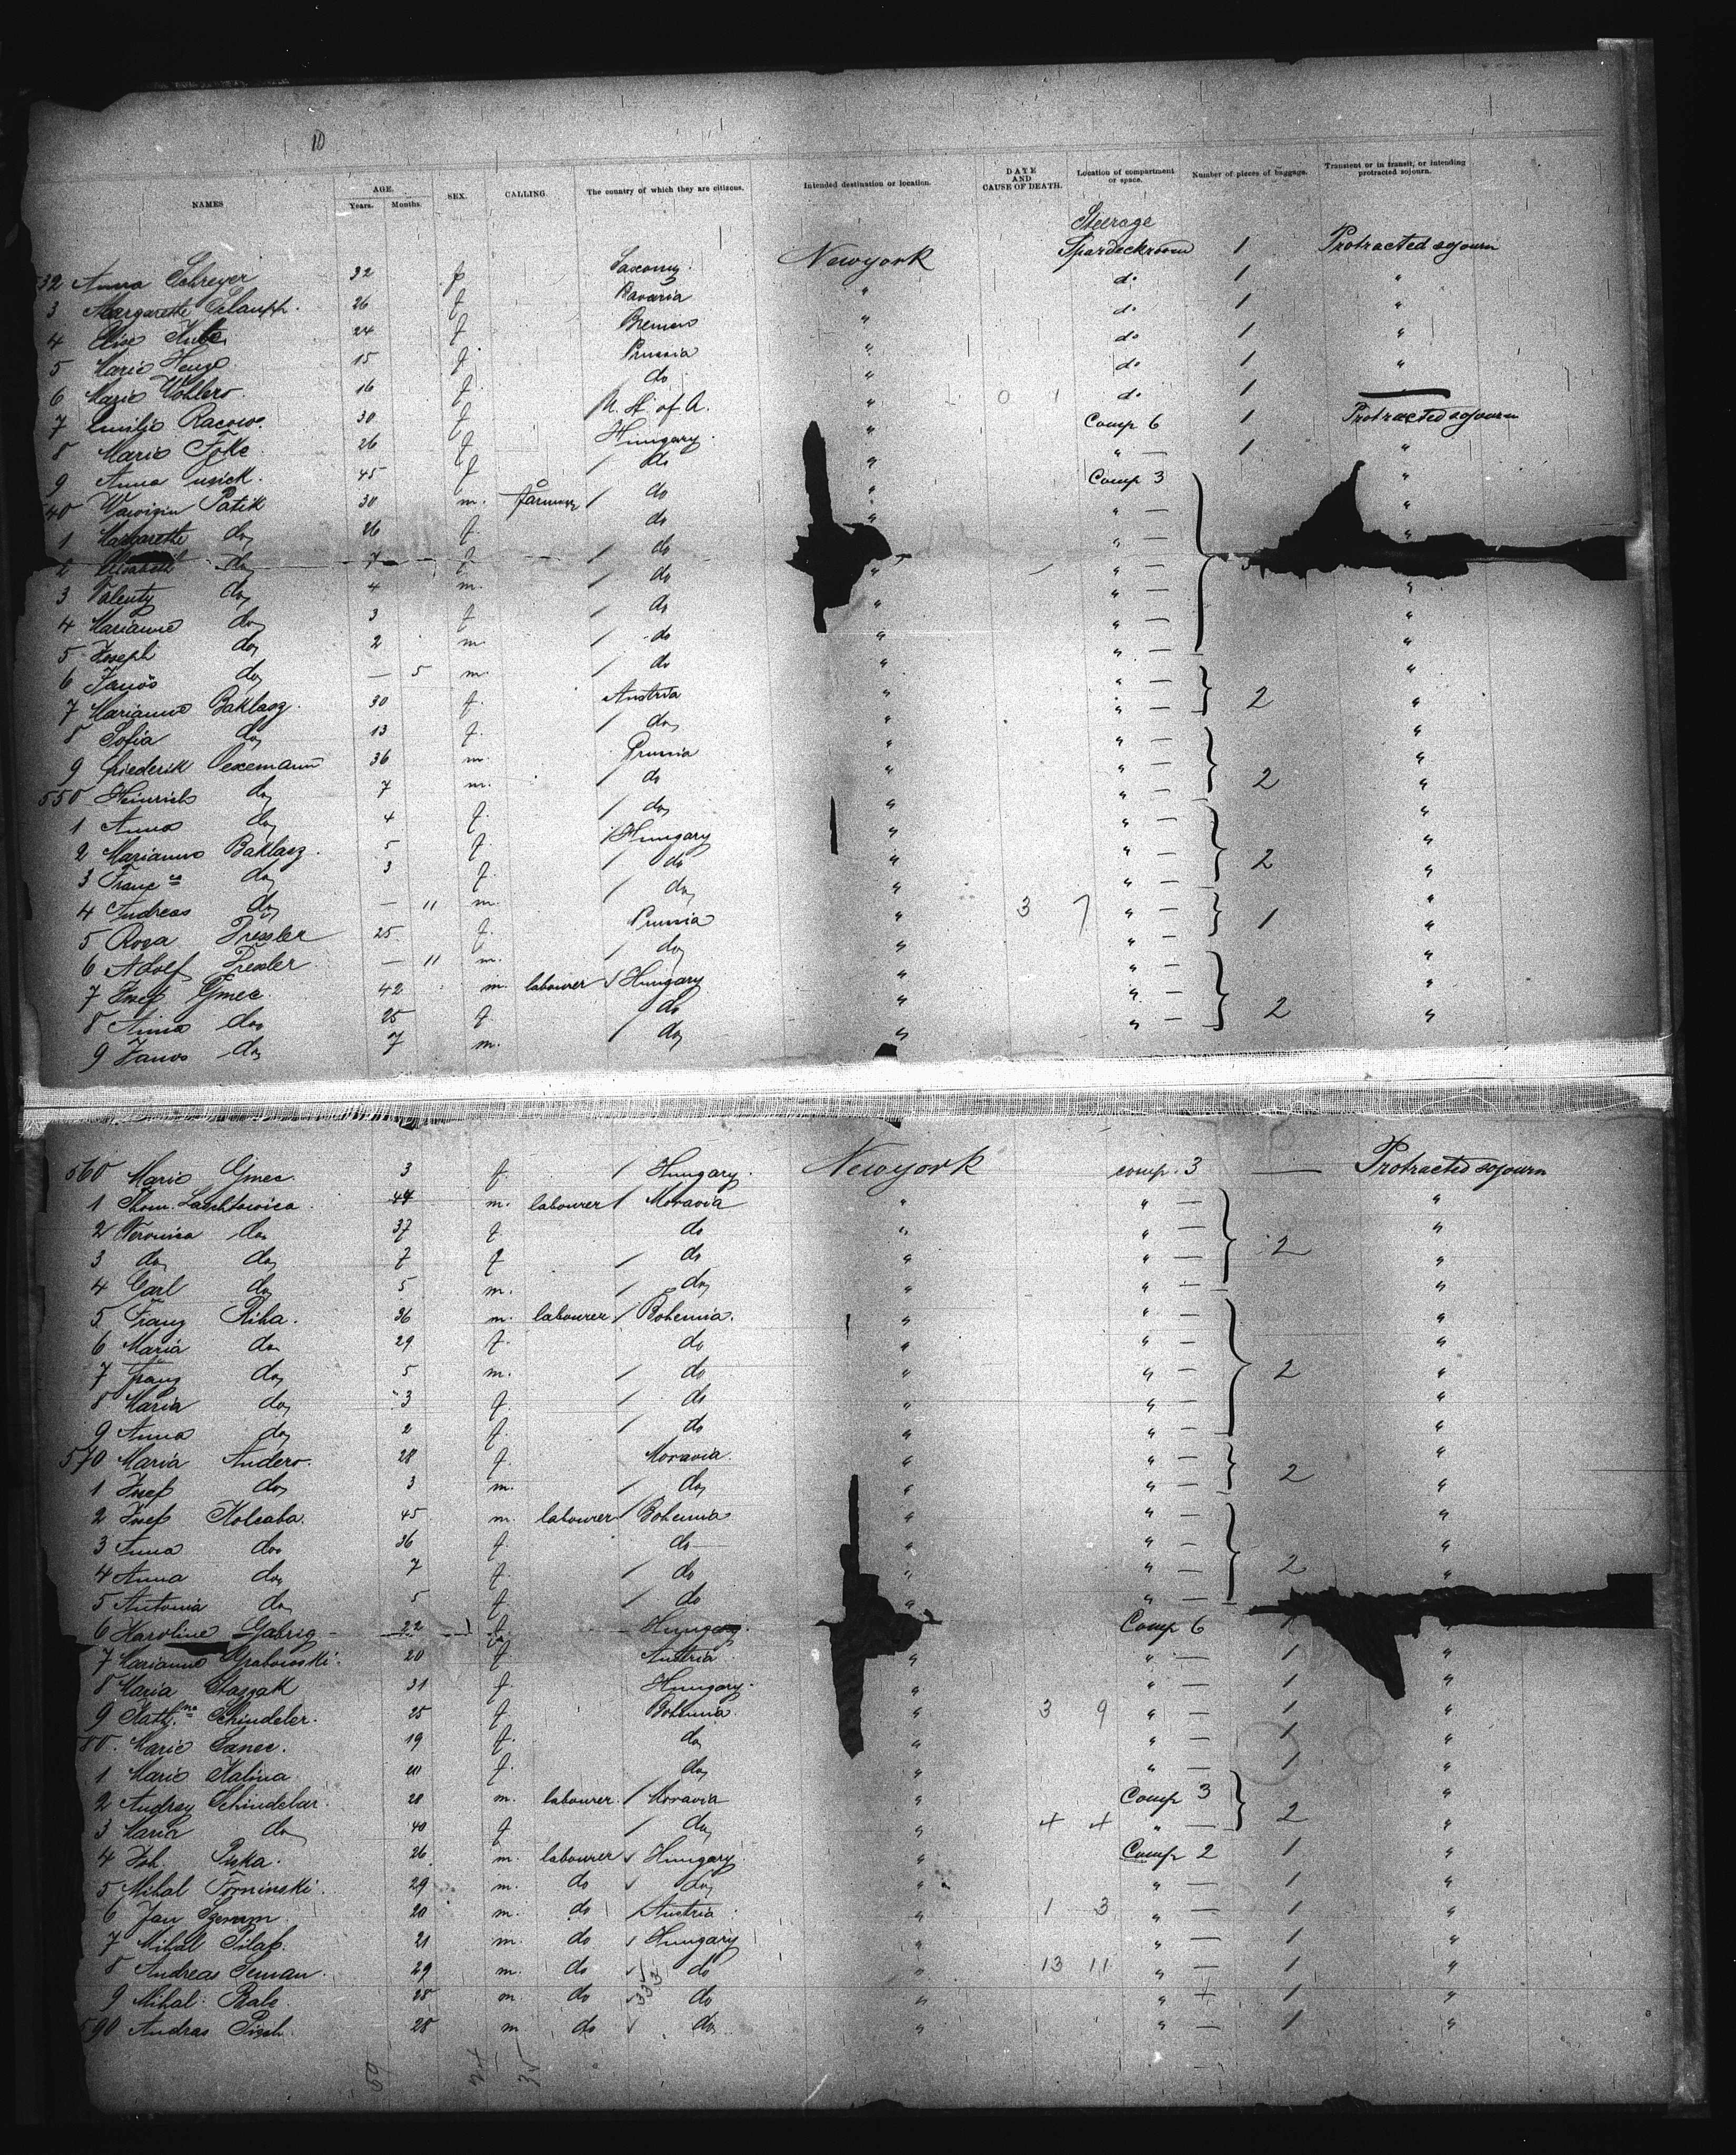 10
NAMES AGE. Years. Months. SEX. CALLING. The country of which they are citizens. Intended destination or location. DATE AND CAUSE OF DEATH. Location of compartment or space. Number of pieces of baggage. Transient or in transit, or intending protracted sojourn.
Steerage
532 Anna Schreyer 32 f Saxony. Newyork Spardeckroom 1 Protracted sojourn
3 Margarethe 26 f. Bavaria " do 1 "
4 Elise 24 f. Bremen " do 1 "
5 Marie Henze 15 f. Prussia " do 1 "
6 Marie Wohlers. 16 f. do " do 1 "
7 Emilie Racow. 30 f U. St. of A. " do 1 —
8 Marie Foke. 26 f Hungary. " Comp 6 1 Protracted sojourn
9 Anna 45 f / do " " — 1 "
540 Patik 30 m. farmer / do " Comp 3 "
1 Margarethe do 26 f. do " " — "
2 Elisabeth do 7 f. / do " — "
3 Valenty do 4 m. / do " " —
4 Marianne do 3 f / do " " — "
5 Joseph do 2 m / do " " — "
6 Janos do — 5 m. / do " " — "
7 Marianne Baklasz. 30 f. Austria " " — 2 "
8 Sofia do 13 f. / do " " — "
9 Friederik Oexemann 36 m. Prussia " " — 2 "
550 Heinrich do 7 m. / do " — "
1 Anna do 4 f. / do " " — "
2 Marianne Baklasz. 5 f. / Hungary " " — 2 "
3 Franc ca do 3 f. / do " " — "
4 Andreas do — 11 m. / do " " — "
5 Rosa Pressler 25 f. Prussia " 3 7 " — 1 "
6 Adolf Pressler. — 11 m. / do " " — "
7 Josef Gmec. 42 m. labourer / Hungary " " — 2 "
8 Anna do 25 f. do " " — "
9 Janos do 7 m. / do " " — "
560 Marie Gmec. 3 f. / Hungary. Newyork comp. 3 — Protracted sojourn
1 Thom. 44 m. labourer / Moravia " " — 2 "
2 Veronica do 37 f. do " " — "
3 do do 7 f / do " " — "
4 Carl do 5 m. / do " " — "
5 Franz Riha. 36 m. labourer / Bohemia. " " — 2 "
6 Maria do 29 f. do " " — "
7 Franz do 5 m. / do " " — "
8 Maria do 3 f. / do " " — "
9 Anna do 2 f. / do " " — "
570 Maria Anders. 28 f. Moravia. " " — 2 "
1 Josef do 3 m. / do " " — "
2 Josef Kolraba. 45 m. labourer / Bohemia " " — 2 "
3 Anna do 36 f. do " " — "
4 Anna do 7 f. / do " " — "
5 Antonia do 5 f. / do " " —
6 Karoline Gabrig 22 f. Hungary. Comp 6 1
7 Marianne Grabowski. 20 f. Austria. " " — 1 "
8 Maria Staszak 31 f. Hungary. " " — 1 "
9 Kath. na Schindeler. 25 f. Bohemia. " 3 9 " — 1 "
80. Marie Janec. 19 f. do " " — 1 "
1 Marie Kalina. f. do " " — 1 "
2 Andrey Schindelar. 28 m. labourer. / Moravia " Comp 3 2 "
3 Maria do 40 f / do " 4 4 " — "
4 Joh. Piska. 26 m. labourer / Hungary. " Comp 2 1 "
5 Mihal Torninski. 29 m. do / do " " — 1 "
6 Jan 20 m. do / Austria. " 1 3 " — 1 "
7 Mihal Pilap. 21 m. do / Hungary " " — 1 "
8 Andreas Seman. 29 m. do do " 13 11 " — 1 "
9 Mihal 28 m. do do " " 1 "
590 Andras 28 m do do " " — 1 "
333
59 24 35